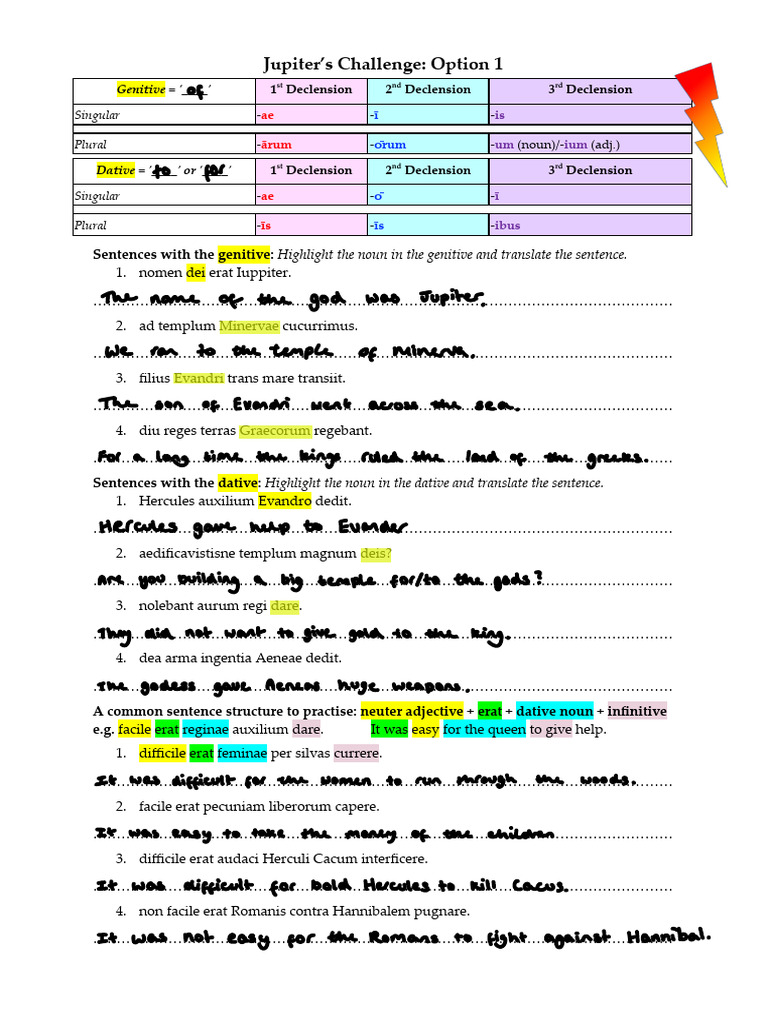 Jupiter's Challenge: Option 1
Genitive = ' of ' 1st Declension 2nd Declension 3rd Declension
Singular -ae -ī -is
Plural -ārum -ōrum -um (noun)/-ium (adj.)
Dative = ' to ' or ' for ' 1st Declension 2nd Declension 3rd Declension
Singular -ae -ō -ī
Plural -īs -īs -ibus
Sentences with the genitive: Highlight the noun in the genitive and translate the sentence.
1. nomen dei erat Iuppiter.
The name of the god was Jupiter.
2. ad templum Minervae cucurrimus.
We ran to the temple of Minerva.
3. filius Evandri trans mare transiit.
The son of Evandri went across the sea.
4. diu reges terras Graecorum regebant.
For a long time the kings ruled the land of the greeks.
Sentences with the dative: Highlight the noun in the dative and translate the sentence.
1. Hercules auxilium Evandro dedit.
Hercules gave help to Evander
2. aedificavistisne templum magnum deis?
are you building a big temple for/to the gods?
3. nolebant aurum regi dare.
They did not want to give gold to the king.
4. dea arma ingentia Aeneae dedit.
The godess gave Aeneas huge weapons.
A common sentence structure to practise: neuter adjective + erat + dative noun + infinitive
e.g. facile erat reginae auxilium dare. It was easy for the queen to give help.
1. difficile erat feminae per silvas currere.
It was difficult for the women to run through the woods.
2. facile erat pecuniam liberorum capere.
It was easy to take the money of the children
3. difficile erat audaci Herculi Cacum interficere.
It was difficult for bold Hercules to kill Cacus.
4. non facile erat Romanis contra Hannibalem pugnare.
It was not easy for the Romans to fight against Hannibal.